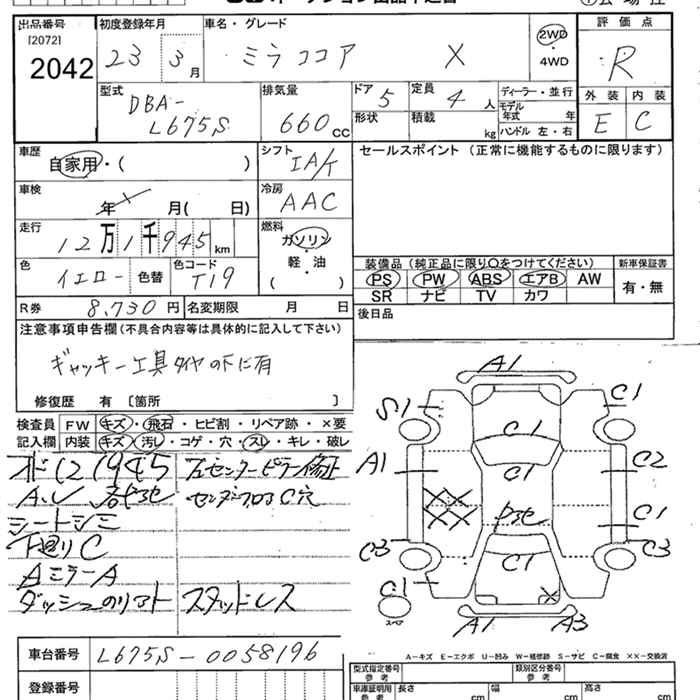 出品番号 初度登録年月 車名・グレード 評価点
[2072]
2042 23 3月 ミラココア X 2WD・4WD R
型式 排気量 ドア 定員 ディーラー・並行 外装 内装
DBA-L675S 660cc 5 4人 モデル年式 年 E C
形状 積載 kg ハンドル 左・右
車歴 シフト セールスポイント（正常に機能するものに限ります）
自家用・( ) IA/t
車検 冷房
年 月( 日) AAC
走行 燃料
12万1千945km ガソリン・軽・油 ( )
色 色コード 装備品（純正品に限り〇をつけてください） 新車保証書
イエロー 色替 T19 PS PW ABS エアB AW 有・無
SR ナビ TV カワ
R券 8,730円 名変期限 月 日 後日品
注意事項申告欄（不具合内容等は具体的に記入して下さい）
ギャッキー工具タイヤの下に有
修復歴 有 〔箇所 〕
検査員 FW キズ・飛石・ヒビ割・リペア跡・×要
記入欄 内装 キズ・汚レ・コゲ・穴・スレ・キレ・破レ
左センターピラー修正
A.U
センターフロアC穴
シートシミ
下廻りC
AミラーA
ダッシュのリアト スタッドレス
A1
S1 C1 C1
A1 C1 C2
C1
C3 C1 C3
C1
スペア A1 A3
A-キズ E-エクボ U-凹み W-補修跡 S-サビ C-腐食 XX-交換済
車台番号 L675S-0058196
登録番号
型式指定番号 参考 類別区分番号 参考
車庫証明用 参考 長さ cm 幅 cm 高さ cm